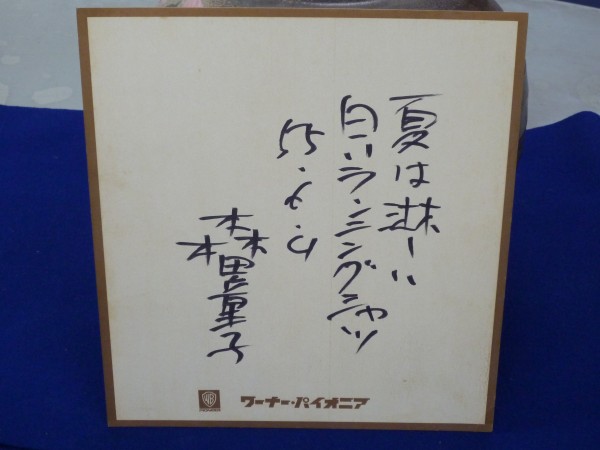 夏は淋しい
白いランニングシャツ
55.6.4
森田童子
ワーナー・パイオニア